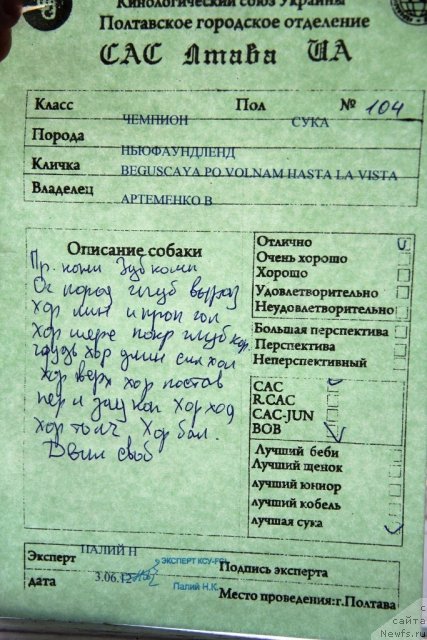 Кинологический союз Украины
Полтавское городское отделение
CAC Лтава UA
Класс ЧЕМПИОН Пол СУКА № 104
Порода НЬЮФАУНДЛЕНД
Кличка BEGUSCAYA PO VOLNAM HASTA LA VISTA
Владелец АРТЕМЕНКО В
Описание собаки
Пр. комп Зуб комп
Ск пород глуб выраз
Хор лин и проп гол
Хор шере покр глуб
грудь хор длин
Хор верх хор постав
пер и зад кон хор ход
Хор бал.
Движ своб
Отлично
Очень хорошо
Хорошо
Удовлетворительно
Неудовлетворительно
Большая перспектива
Перспектива
Неперспективный
CAC
R.CAC
CAC-JUN
BOB
Лучший беби
Лучший щенок
лучший юниор
лучший кобель
лучшая сука
Эксперт ПАЛИЙ Н
ЭКСПЕРТ КСУ-FCI
Палий Н.К.
Подпись эксперта
дата 3.06.12
Место проведения:г.Полтава
с
сайта
Newfs.ru